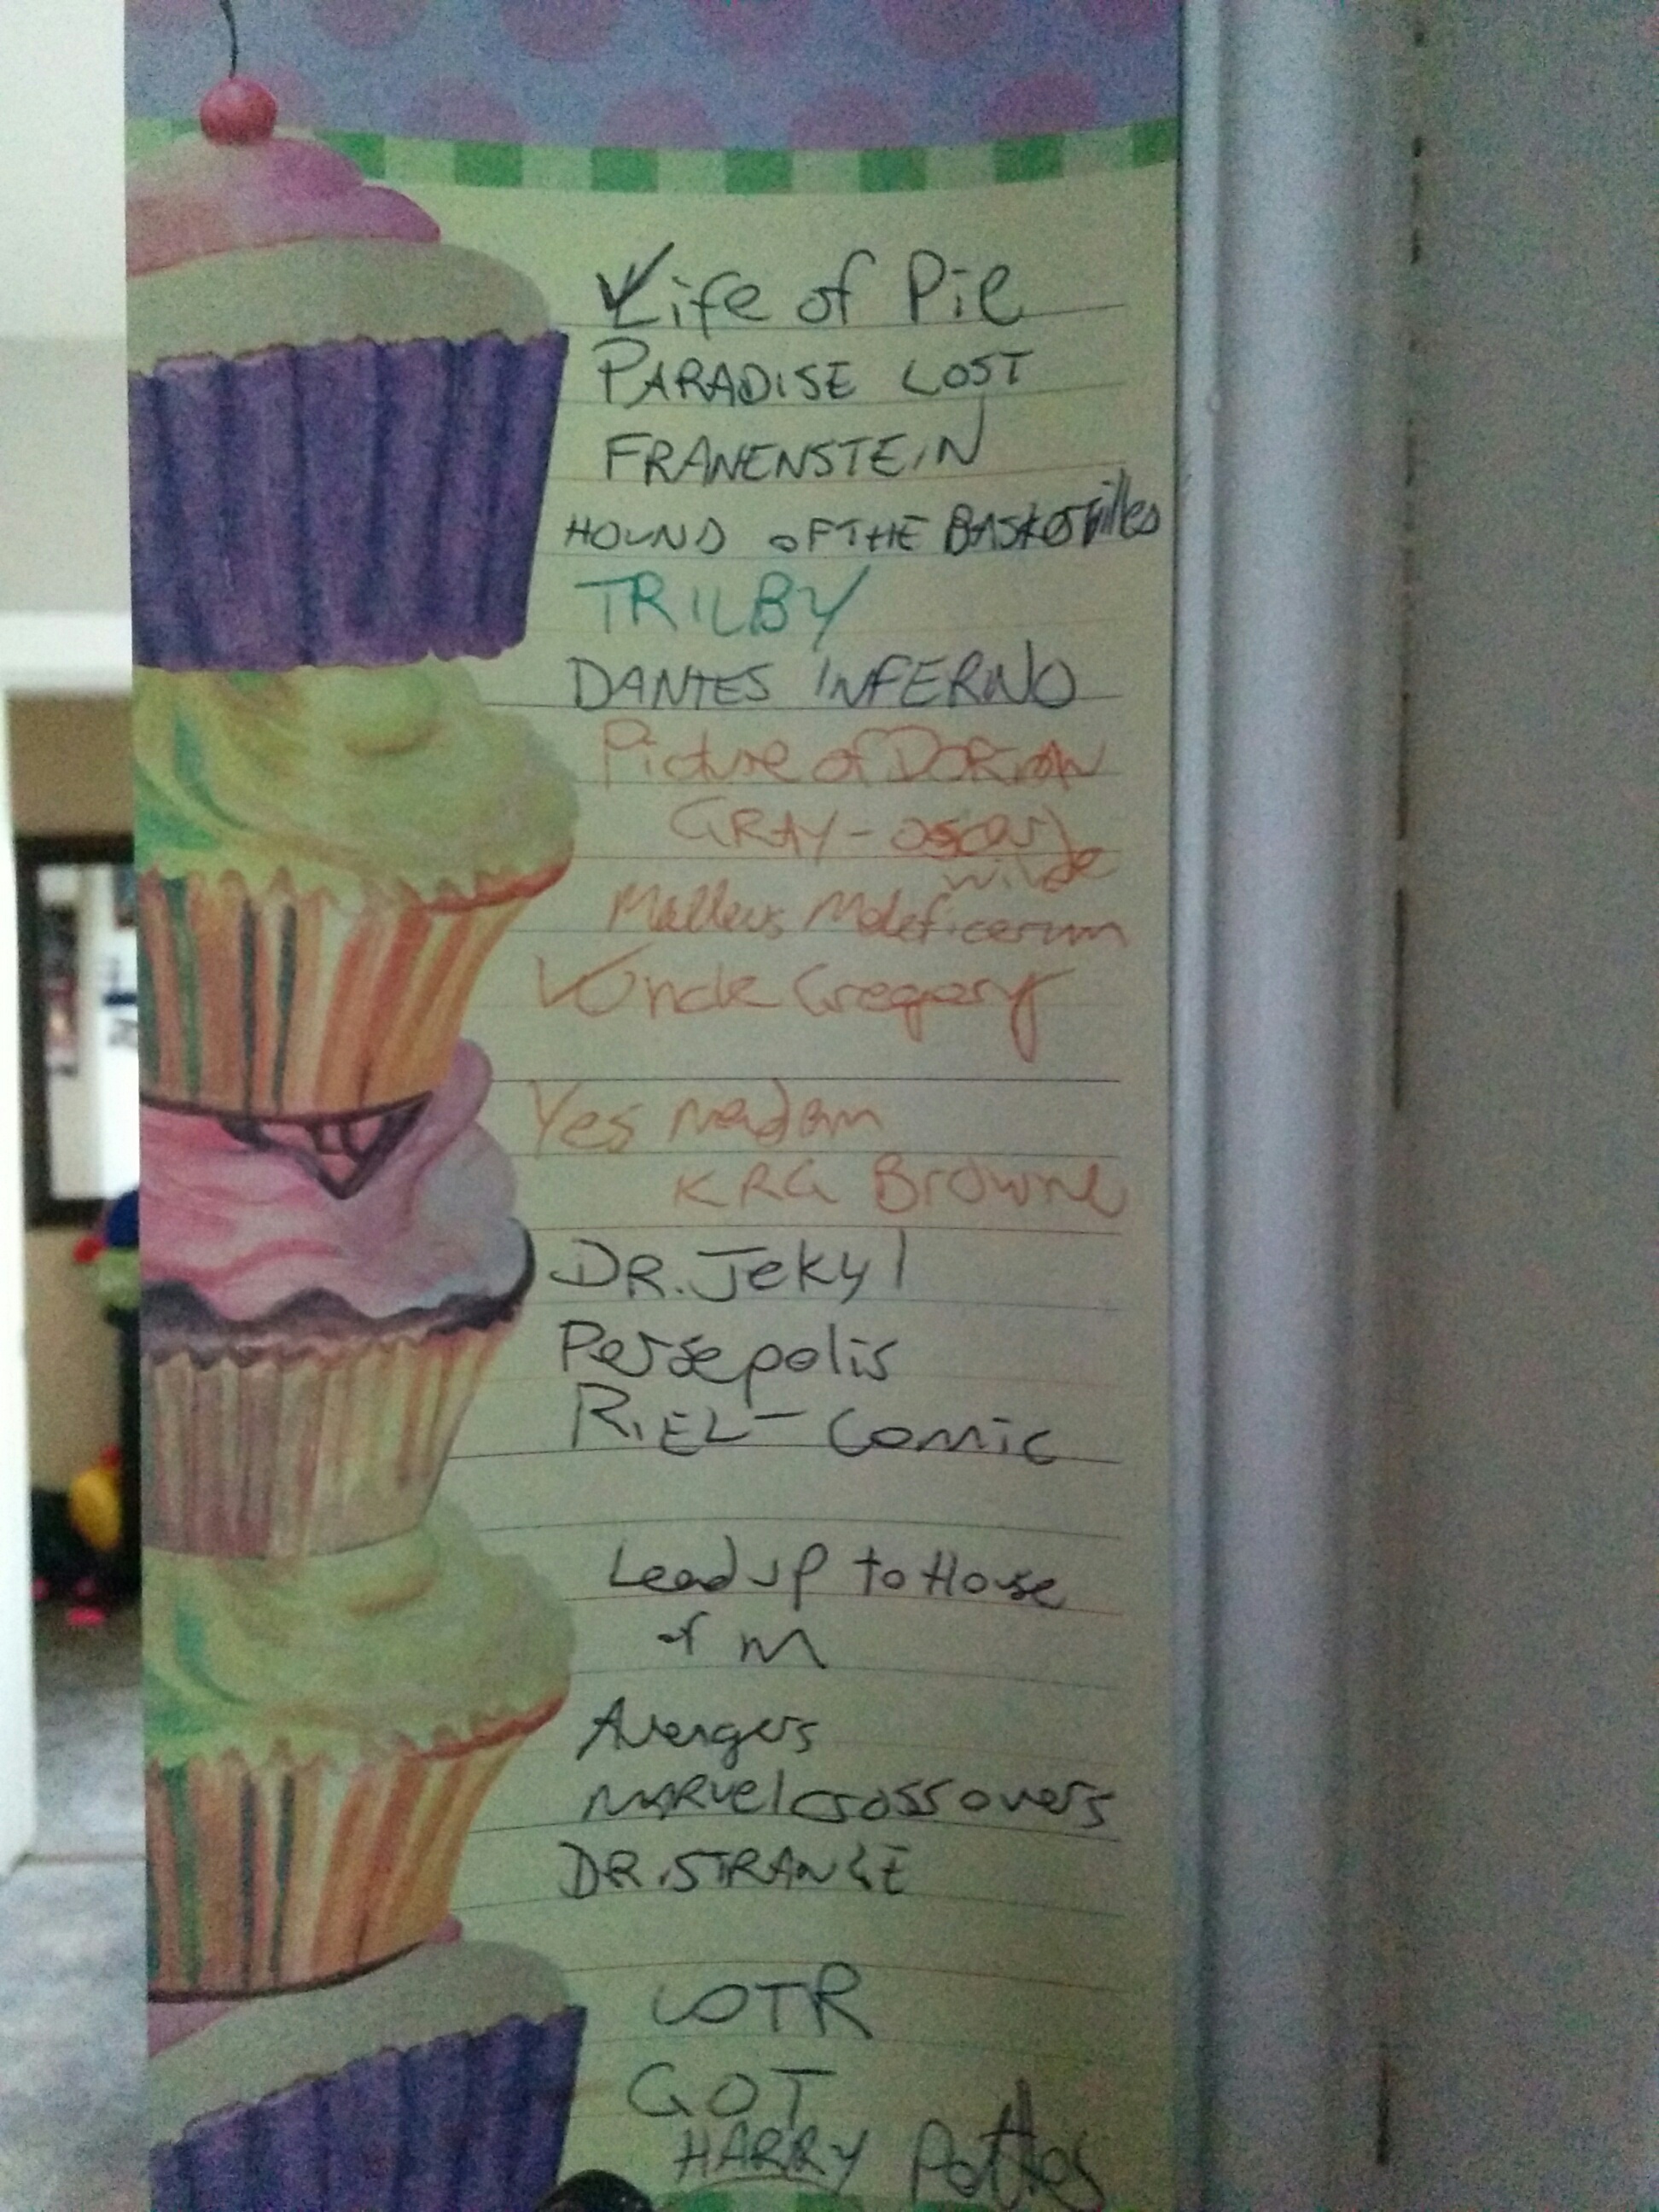 Life of Pie
PARADISE LOST
FRANENSTEIN
HOUND OF THE BASKERVilles
TRILBY
DANTES INFERNO
Picture of DORIAN
GRAY - oscar
wilde
Malleus Maleficerum
Uncle Gregory
Yes madam
KRG Browne
DR. Jekyl
Persepolis
RIEL - Comic
Lead up to House
of m
Avengers
MARvel crossovers
DR. STRANGE
LOTR
GOT
HARRY Potter